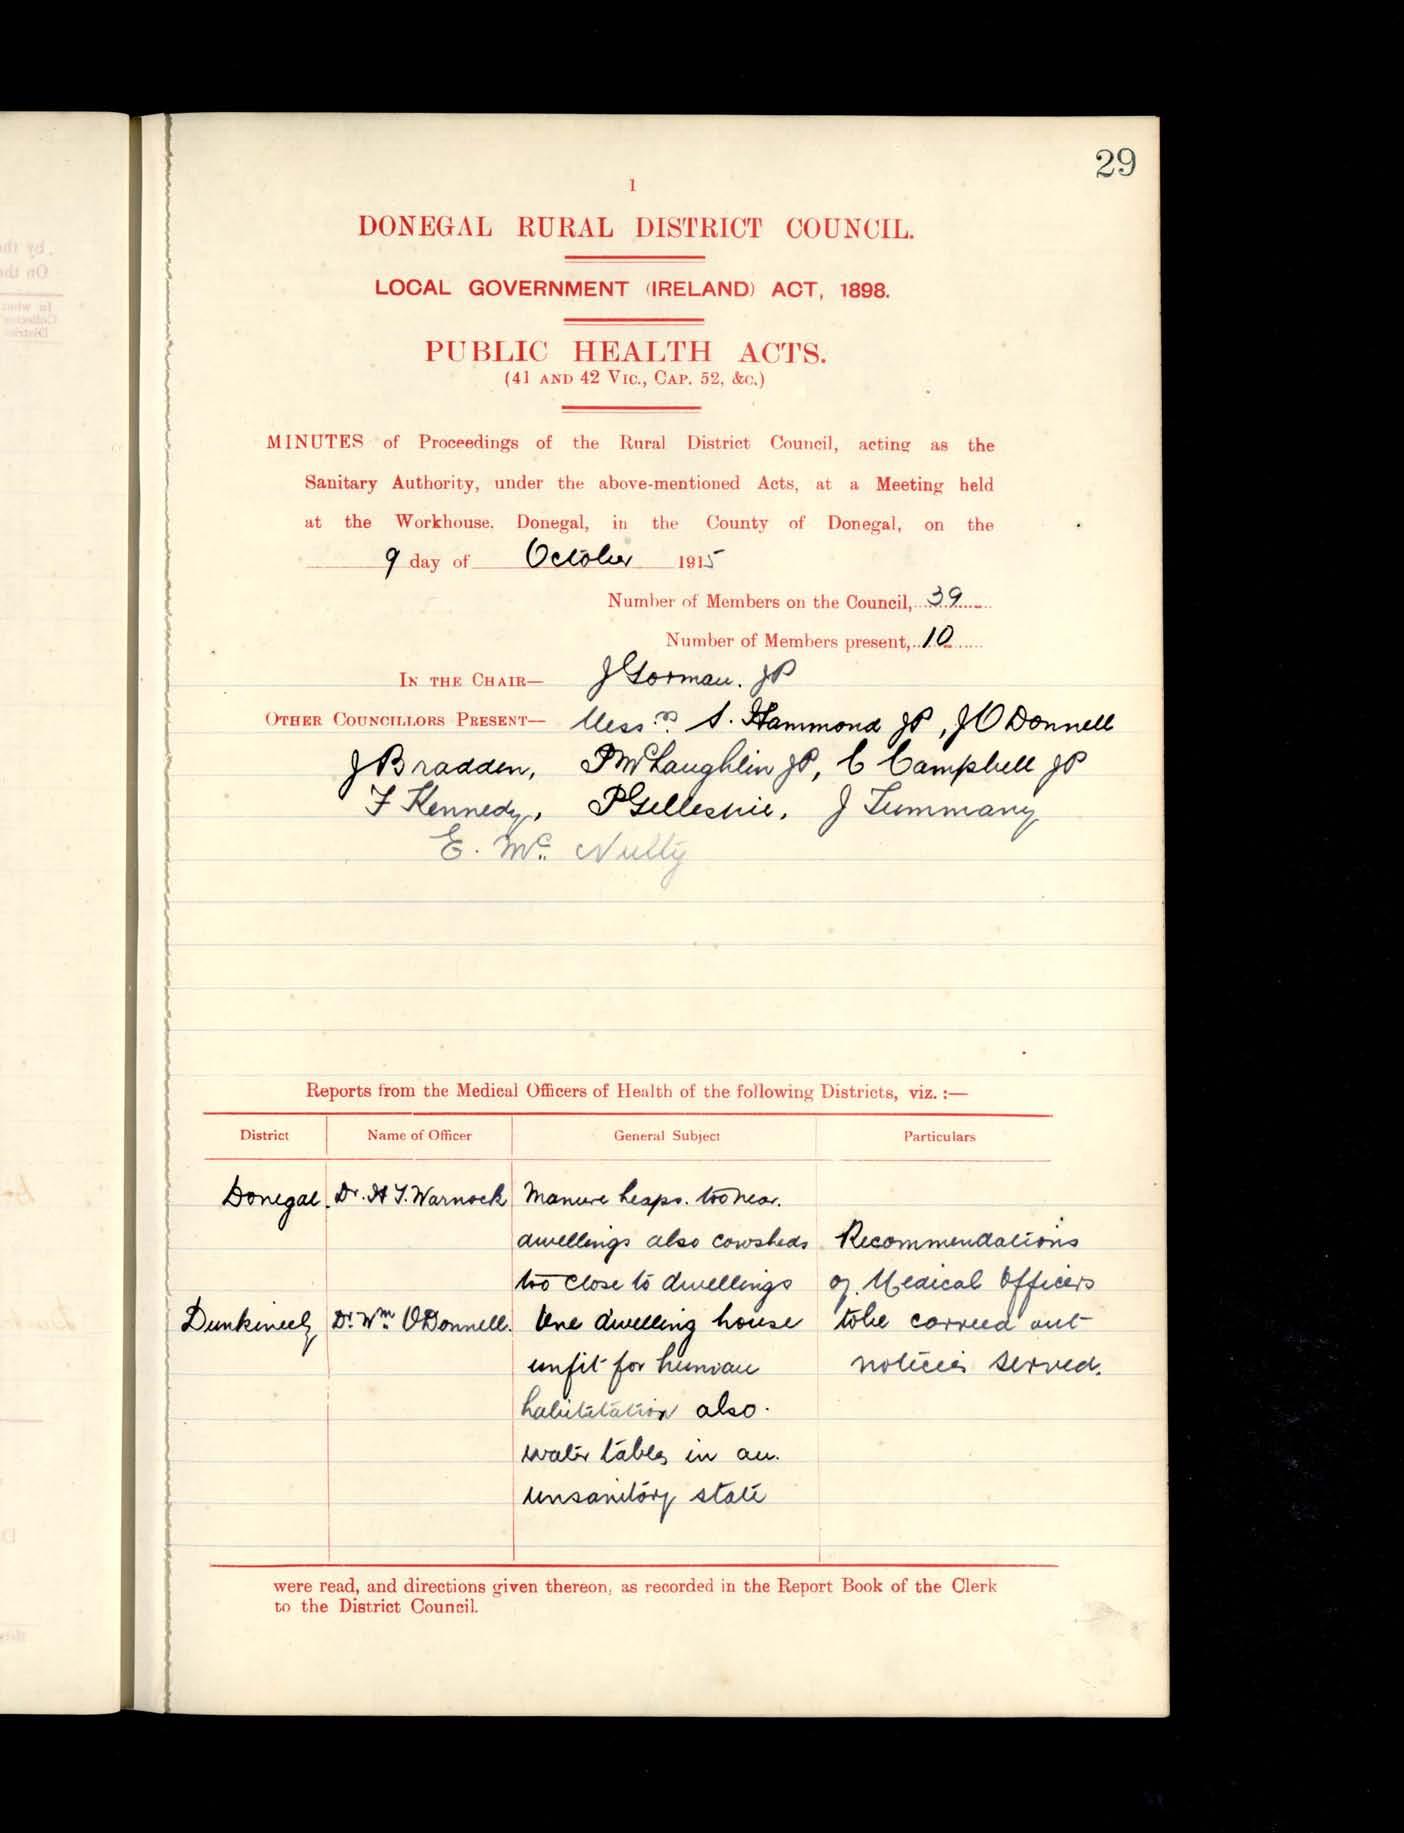 29
1
DONEGAL RURAL DISTRICT COUNCIL.
LOCAL GOVERNMENT (IRELAND) ACT, 1898.
PUBLIC HEALTH ACTS.
(41 AND 42 VIC., CAP. 52, &C.)
MINUTES of Proceedings of the Rural District Council, acting as the
Sanitary Authority, under the above-mentioned Acts, at a Meeting held
at the Workhouse, Donegal, in the County of Donegal, on the
9 day of October 1915
Number of Members on the Council, 39
Number of Members present, 10
IN THE CHAIR— J Gorman. JP
OTHER COUNCILLORS PRESENT— Messrs. S. Hammond JP, J O Donnell
J Bradden, P McLaughlin JP, C Campbell JP
F Kennedy, P Gillespie, J Timmany
E. Mc. Nulty
Reports from the Medical Officers of Health of the following Districts, viz. :—
District Name of Officer General Subject Particulars
Donegal. Dr. H T. Warnock Manure heaps. too near.
dwellings also cowsheds Recommendations
too close to dwellings of Medical Officers
Dunkineely Dr. Wm. O'Donnell. One dwelling house to be carried out
unfit for human notices served.
habitation also.
water tables in an.
unsanitary state
were read, and directions given thereon, as recorded in the Report Book of the Clerk
to the District Council.